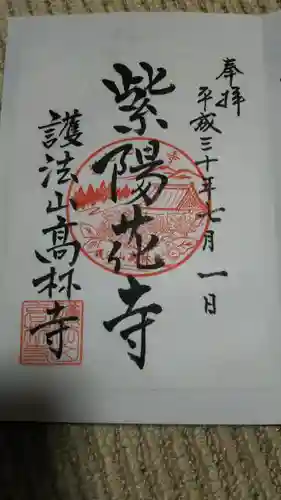 奉拝
平成三十年七月一日
紫陽花寺
護法山高林寺